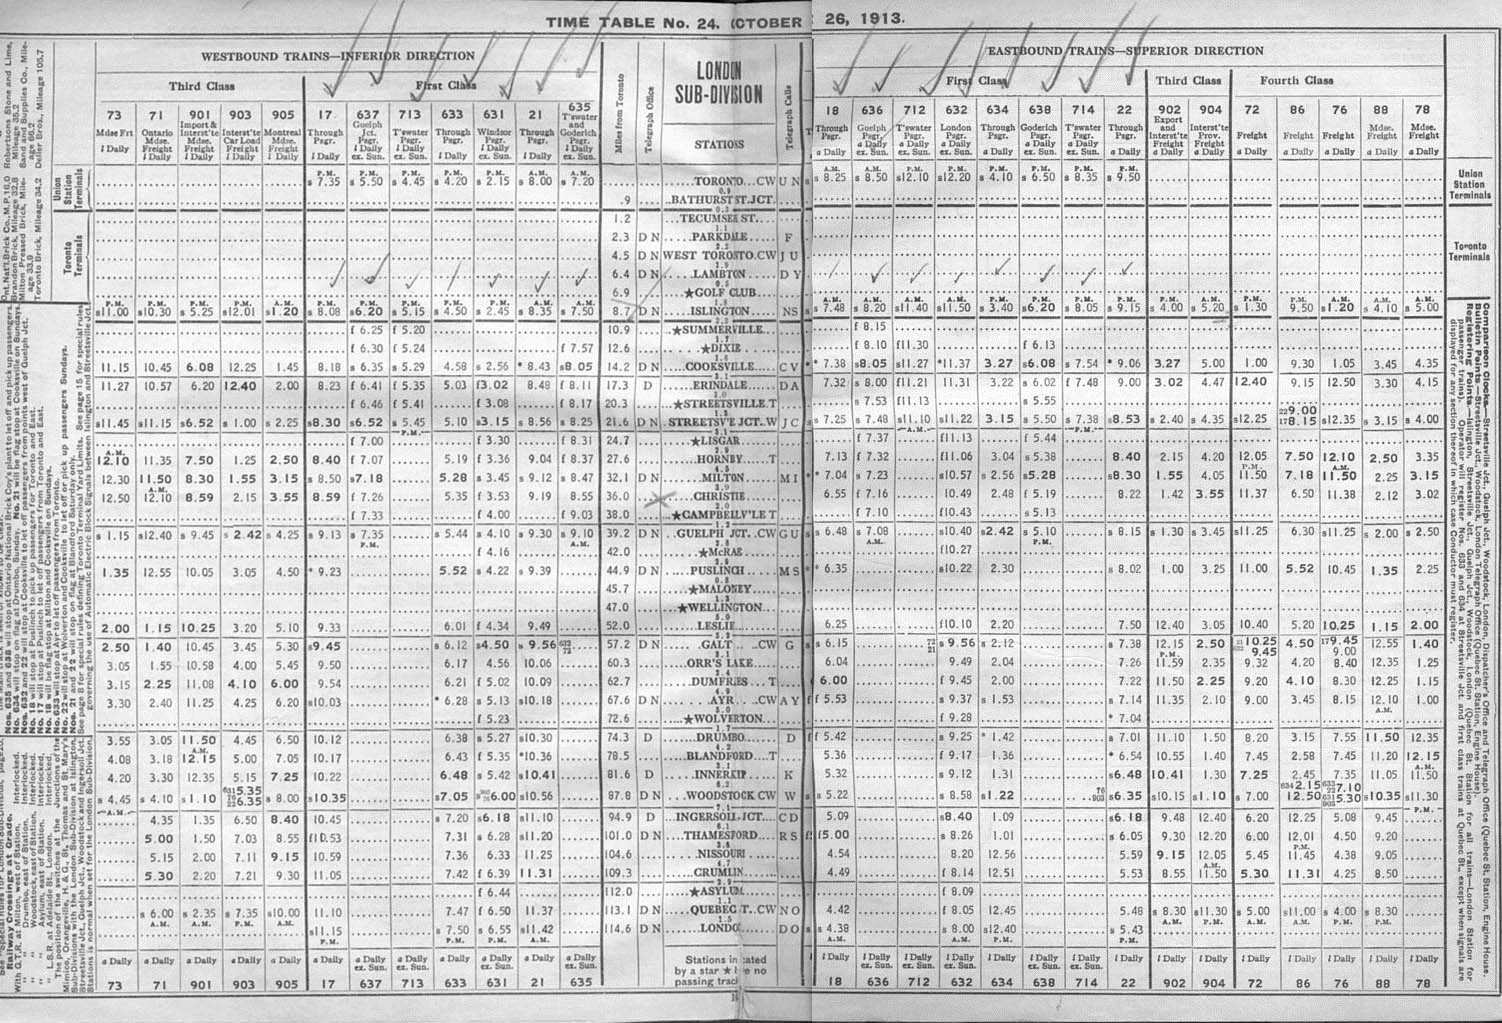 TIME TABLE No. 24. OCTOBER 26, 1913.
WESTBOUND TRAINS—INFERIOR DIRECTION LONDON SUB-DIVISION EASTBOUND TRAINS—SUPERIOR DIRECTION
Third Class First Class First Class Third Class Fourth Class
73 71 901 903 905 17 637 713 633 631 21 635 Miles from Toronto Telegraph Office STATIONS Telegraph Calls 18 636 712 632 634 638 714 22 902 904 72 86 76 88 78
Mdse Frt l Daily
Ontario Mdse. Freight l Daily
Import & Interst'te Mdse. Freight l Daily
Interst'te Car Load Freight l Daily
Montreal Mdse. Freight l Daily
Through Psgr. l Daily
Guelph Jct. Psgr. l Daily ex. Sun.
T'swater Psgr. l Daily ex. Sun.
Through Psgr. l Daily
Windsor Psgr. l Daily ex. Sun.
Through Psgr. l Daily
T'swater and Goderich Psgr. l Daily ex. Sun.
Through Psgr. a Daily
Guelph Psgr. a Daily ex. Sun.
T'swater Psgr. a Daily ex. Sun.
London Psgr. a Daily ex. Sun.
Through Psgr. a Daily
Goderich Psgr. a Daily ex. Sun.
T'swater Psgr. a Daily ex. Sun.
Through Psgr. a Daily
Export and Interst'te Freight a Daily
Interst'te Prov. Freight a Daily
Freight a Daily
Freight a Daily
Freight a Daily
Mdse. Freight a Daily
Mdse. Freight a Daily
Union Station Terminals
P.M. P.M. P.M. P.M. P.M. A.M. A.M. A.M. A.M. P.M. P.M. P.M. P.M. P.M. P.M.
s 7.35 s 5.50 s 4.45 s 4.20 s 2.15 s 8.00 s 7.20 TORONTO CW U N s 8.25 s 8.50 s12.10 s12.20 s 4.10 s 6.50 s 8.35 s 9.50
.9 BATHURST ST. JCT.
Toronto Terminals
1.2 TECUMSEH ST.
2.3 D N PARKDALE F
4.5 D N WEST TORONTO CW J U
6.4 D N LAMBTON D Y
6.9 ★GOLF CLUB
s11.00 s10.30 s 5.25 s12.01 s1.20 s 8.08 s6.20 s 5.15 s 4.50 s 2.45 s 8.35 s 7.50 8.7 D N ISLINGTON NS s 7.48 s 8.20 s11.40 s11.50 s 3.40 s6.20 s 8.05 s 9.15 s 4.00 s 5.20 s 1.30 9.50 s1.20 s 4.10 s 5.00
f 6.25 f 5.20 10.9 ★SUMMERVILLE f 8.15
f 6.30 f 5.24 f 7.57 12.6 ★DIXIE f 8.10 f11.30 f 6.13
11.15 10.45 6.08 12.25 1.45 8.18 s 6.35 s 5.29 4.58 s 2.56 * 8.43 s8.05 14.2 D N COOKSVILLE C V * 7.38 s8.05 s11.27 *11.37 3.27 s6.08 s 7.54 * 9.06 3.27 5.00 1.00 9.30 1.05 3.45 4.35
11.27 10.57 6.20 12.40 2.00 8.23 f 6.41 f 5.35 5.03 f3.02 8.48 f 8.11 17.3 D ERINDALE D A 7.32 s 8.00 f11.21 11.31 3.22 s 6.02 f 7.48 9.00 3.02 4.47 12.40 9.15 12.50 3.30 4.15
f 6.46 f 5.41 f 3.08 f 8.17 20.3 ★STREETSVILLE T s 7.53 f11.13 s 5.55
s11.45 s11.15 s6.52 s 1.00 s 2.25 s8.30 s6.52 s 5.45 5.10 s3.15 s 8.56 s 8.25 21.6 D N STREETSV'E JCT. W J C s 7.25 s 7.48 s11.10 s11.22 3.15 s 5.50 s 7.38 s8.53 s 2.40 s 4.35 s12.25 229.00 178.15 s12.35 s 3.15 s 4.00
f 7.00 f 3.30 f 8 31 24.7 ★LISGAR f 7.37 f11.13 f 5.44
12.10 11.35 7.50 1.25 2.50 8.40 f 7.07 5.19 f 3.36 9.04 f 8.37 27.6 HORNBY T 7.13 f 7.32 f11.06 3.04 s 5.38 8.40 2.15 4.20 12.05 7.50 12.10 2.50 3.35
12.30 11.50 8.30 1.55 3.15 s 8.50 s7.18 5.28 s 3.45 s 9.12 s 8.47 32.1 D N MILTON M I * 7.04 s 7.23 s10.57 s 2.56 s5.28 s8.30 1.55 4.05 11.50 7.18 11.50 2.25 3.15
12.50 12.10 8.59 2.15 3.55 8.59 f 7.26 5.35 f 3.53 9.19 8.55 36.0 CHRISTIE 6.55 f 7.16 10.49 2.48 f 5.19 8.22 1.42 3.55 11.37 6.50 11.38 2.12 3.02
f 7.33 f 4.00 f 9.03 38.0 ★CAMPBELLV'LE T f 7.10 f 10.43 s 5.13
s 1.15 s12.40 s 9.45 s 2.42 s 4.25 s 9.13 s 7.35 s 5.44 s 4.10 s 9.30 s 9.10 39.2 D N GUELPH JCT. CW G U s 6.48 s 7.08 s10.40 s2.42 s 5.10 s 8.15 s 1.30 s 3.45 s11.25 6.30 s11.25 s 2.00 s 2.50
f 4.16 42.0 ★McRAE f10.27
1.35 12.55 10.05 3.05 4.50 * 9.23 5.52 s 4.22 s 9.39 44.9 D N PUSLINCH M S * 6.35 s10.22 2.30 s 8.02 1.00 3.25 11.00 5.52 10.45 1.35 2.25
45.7 ★MALONEY
47.0 ★WELLINGTON
2.00 1.15 10.25 3.20 5.10 9.33 6.01 f 4.34 9.49 52.0 LESLIE 6.25 f10.10 2.20 7.50 12.40 3.05 10.40 5.20 10.25 1.15 2.00
2.50 1.40 10.45 3.45 5.30 s9.45 s 6.12 s4.50 s 9.56 632 72 57.2 D N GALT CW G s 6.15 72 21 s 9.56 s 2.12 s 7.38 12.15 2.50 21 10.25 632 9.45 4.50 179.45 9.00 12.55 1.40
3.05 1.55 10.58 4.00 5.45 9.50 6.17 4.56 10.06 60.3 ORR'S LAKE 6.04 9.49 2.04 7.26 11.59 2.35 9.32 4.20 8.40 12.35 1.25
3.15 2.25 11.08 4.10 6.00 9.54 6.21 f 5.02 10.09 62.7 DUMFRIES T 6.00 f 9.45 2.00 7.22 11.50 2.25 9.20 4.10 8.30 12.25 1.15
3.30 2.40 11.25 4.25 6.20 s10.03 * 6.28 s 5.13 s10.18 67.6 D N AYR CW A Y f 5.53 s 9.37 s 1.53 s 7.14 11.35 2.10 9.00 3.45 8.15 12.10 1.00
f 5.23 72.6 ★WOLVERTON f 9.28 * 7.04
3.55 3.05 11.50 4.45 6.50 10.12 6.38 s 5.27 s10.30 74.3 D DRUMBO D f 5.42 s 9.25 * 1.42 s 7.01 11.10 1.50 8.20 3.15 7.55 11.50 12.35
4.08 3.18 12.15 5.00 7.05 10.17 6.43 f 5.35 *10.36 78.5 BLANDFORD T 5.36 f 9.17 1.36 * 6.54 10.55 1.40 7.45 2.58 7.45 11.20 12.15
4.20 3.30 12.35 5.15 7.25 10.22 6.48 s 5.42 s10.41 81.6 D INNERKIP K 5.32 s 9.12 1.31 s6.48 10.41 1.30 7.25 2.45 7.35 11.05 11.50
s 4.45 s 4.10 s1.10 6315.35 6.35 s 8.00 s10.35 s7.05 6.00 s10.56 87.8 D N WOODSTOCK CW W s 5.22 s 8.58 s1.22 76 903 s6.35 s10.15 s1.10 s 7.00 6342.15 12.50 7.10 5.30 s10.35 s11.30
4.35 1.35 6.50 8.40 10.45 s 7.20 s6.18 s11.10 94.9 D INGERSOLL JCT. C D 5.09 s8.40 1.09 s6.18 9.48 12.40 6.20 12.25 5.08 9.45
5.00 1.50 7.03 8.55 f10.53 s 7.31 s 6.28 s11.20 101.0 D N THAMESFORD R S f5.00 s 8.26 1.01 s 6.05 9.30 12.20 6.00 12.01 4.50 9.20
5.15 2.00 7.11 9.15 10.59 7.36 6.33 11.25 104.6 NISSOURI 4.54 8.20 12.56 5.59 9.15 12.05 5.45 11.45 4.38 9.05
5.30 2.20 7.21 9.30 11.05 7.42 f 6.39 11.31 109.3 CRUMLIN 4.49 f 8.14 12.51 5.53 8.55 11.50 5.30 11.31 4.25 8.50
f 6.44 112.0 ★ASYLUM f 8.09
s 6.00 s 2.35 s 7.35 s10.00 11.10 7.47 f 6.50 11.37 113.1 D N QUEBEC T. CW N O 4.42 f 8.05 12.45 5.48 s 8.30 s11.30 s 5.00 s11.00 s 4.00 s 8.30
s11.15 s 7.50 s 6.55 s11.42 114.6 D N LONDON D O s 4.38 s 8.00 s12.40 s 5.43
a Daily a Daily a Daily a Daily a Daily a Daily a Daily ex. Sun. a Daily ex. Sun. a Daily a Daily ex. Sun. a Daily a Daily ex. Sun. l Daily l Daily ex. Sun. l Daily ex. Sun. l Daily ex. Sun. l Daily l Daily ex. Sun. l Daily ex. Sun. l Daily l Daily l Daily l Daily l Daily l Daily l Daily l Daily
Stations indicated by a star ★ have no passing track
73 71 901 903 905 17 637 713 633 631 21 635 18 636 712 632 634 638 714 22 902 904 72 86 76 88 78
Ont. Nat'l. Brick Co., M.P. 16.0
Milton Pressed Brick, Mileage 33.9
Toronto Brick, Mileage 34.2
Robertsons Stone and Lime, Mileage 35.2
Sand and Supplies Co., Mileage 66.2
Deller Bros., Mileage 105.7
No. 634 will stop on flag at Drumbo, Sunday.
No. 21 will be flag stop at Cooksville on Sundays.
No. 17 will stop at Puslinch to let off passengers from Toronto and East.
No. 18 will be flag stop at Milton and Cooksville on Sundays.
No. 633 will stop at Ayr to let off passengers from Toronto.
No. 22 will stop at Wolverton and Cooksville to let off or pick up passengers Sundays.
Nos. 21 and 22 will stop on flag at Blandford Saturday only.
See page 8 for special rules defining Toronto Terminal Yard Limits. See page 15 for special rules governing the use of Automatic Electric Block Signals between Islington and Streetsville Jct.
Railway Crossings at Grade.
With G.T.R. at Milton, west of Station. Interlocked.
Drumbo, east of Station. Interlocked.
Woodstock, east of Station. Interlocked.
Asylum, east of Station. Interlocked.
L.S.R. at Adelaide St., London. Interlocked.
Union Station Terminals
Toronto Terminals
Comparison Clocks—Streetsville Jct., Guelph Jct., Woodstock, London Telegraph Office (Quebec St. Station, Engine House).
Bulletin Points—Streetsville Jct., Guelph Jct., Woodstock, London, Dispatcher's Office (Quebec St. Station, Engine House.
Registering Points—Islington, Streetsville Jct., Guelph Jct., Woodstock, London (Quebec St. Station for all trains—London Station for passenger trains). Operator will register Nos. 633 and 634 at Streetsville Jct. and first class trains at Quebec St., except when signals are displayed for any section thereof in which case Conductor must register.